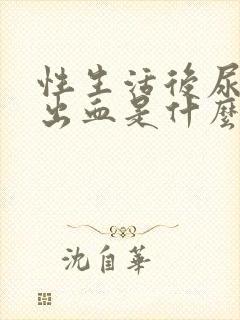 性生活後尿
出血是什麼
沈自華